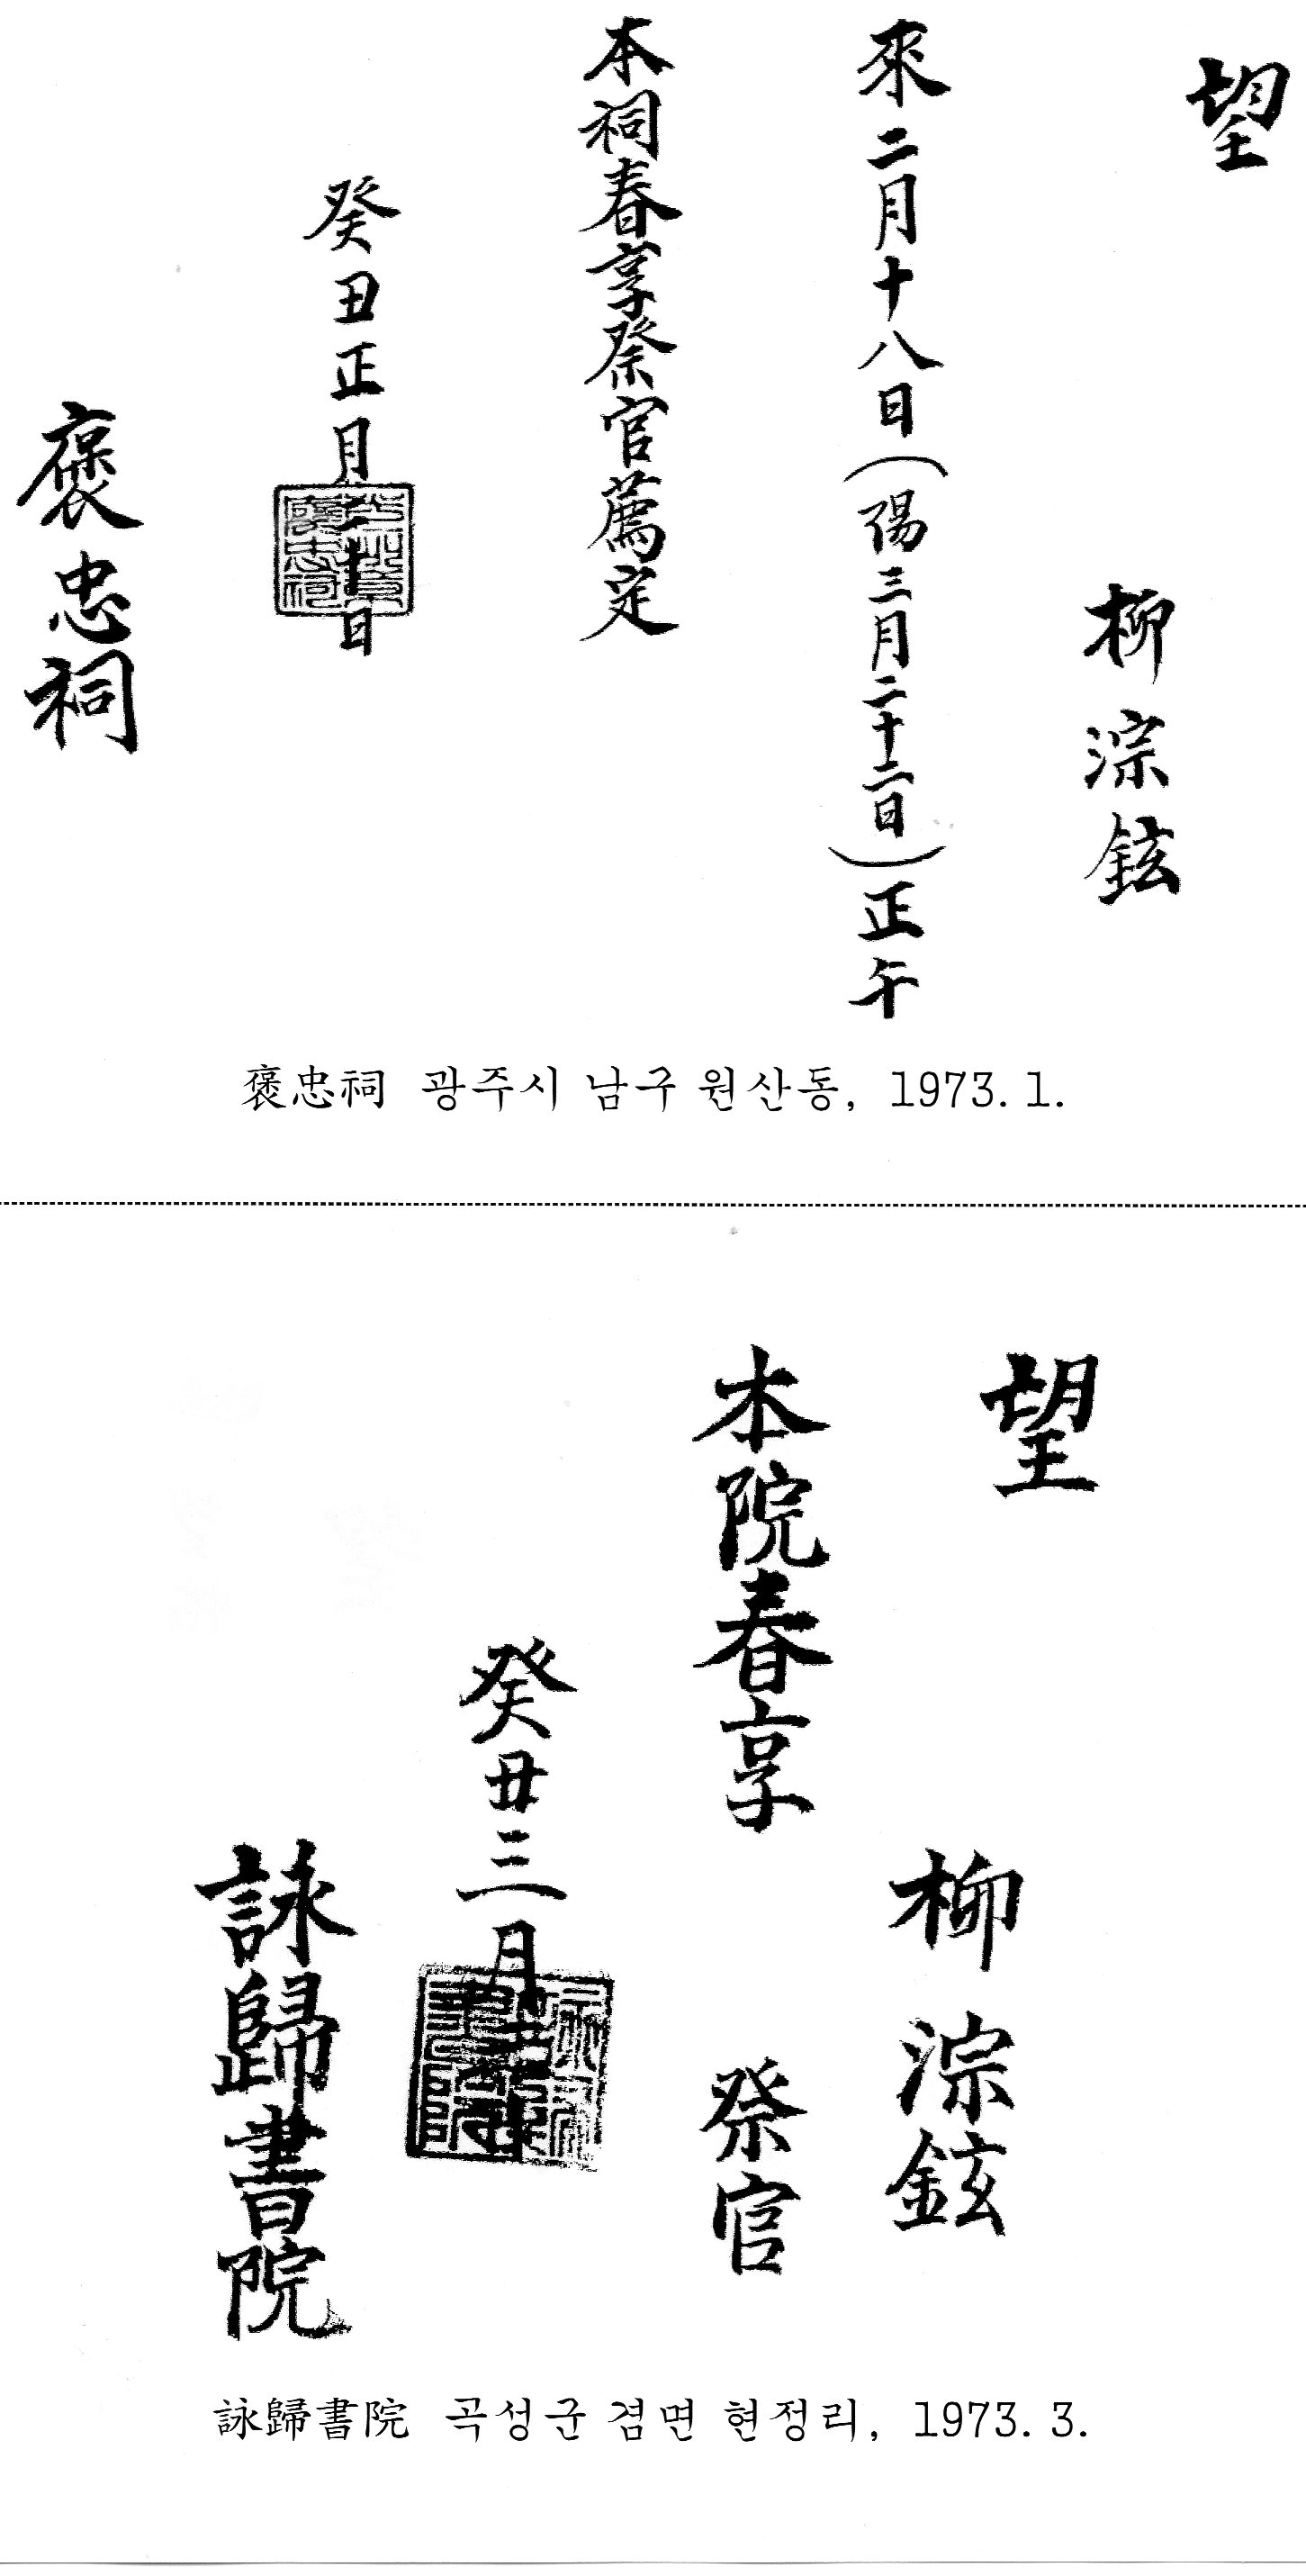 望
柳淙鉉
來二月十八日(陽三月二十二日)正午
本祠春享祭官薦定
癸丑正月二十日
褒忠祠
褒忠祠 광주시 남구 원산동, 1973. 1.
望
柳淙鉉
本院春享 祭官
癸丑三月
詠歸書院
詠歸書院 곡성군 겸면 현정리, 1973. 3.